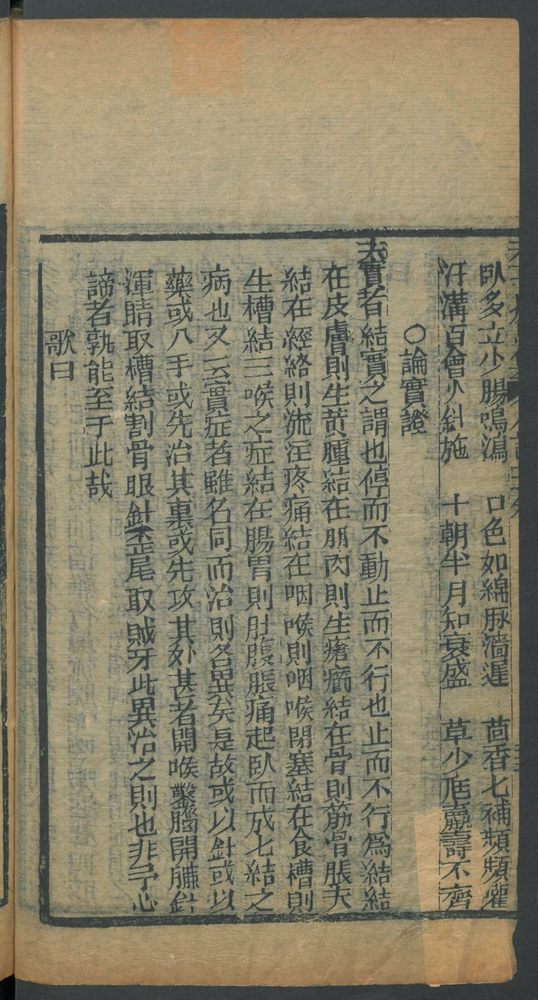 臥多立少腸鳴瀉 口色如綿脉濇遲 茴香七補頻頻灌
汗溝百會火斜施 十朝半月知衰盛 草少 壽不齊
○論實證
夫實者結實之謂也停而不動止而不行也止而不行爲結結
在皮膚則生黄腫結在肌肉則生瘡癀結在骨則筋骨脹大
結在經絡則流注疼痛結在咽喉則咽喉閉塞結在食槽則
生槽結三喉之症結在腸胃則肚腹脹痛起臥而成七結之
病也又云實症者雖名同而治則各異矣是故或以針或以
藥或八手或先治其裏或先攻其外甚者開喉鑿腦開臁針
渾睛取槽結割骨眼針歪尾取賊牙此異治之則也非予心
諳者孰能至于此哉
歌曰